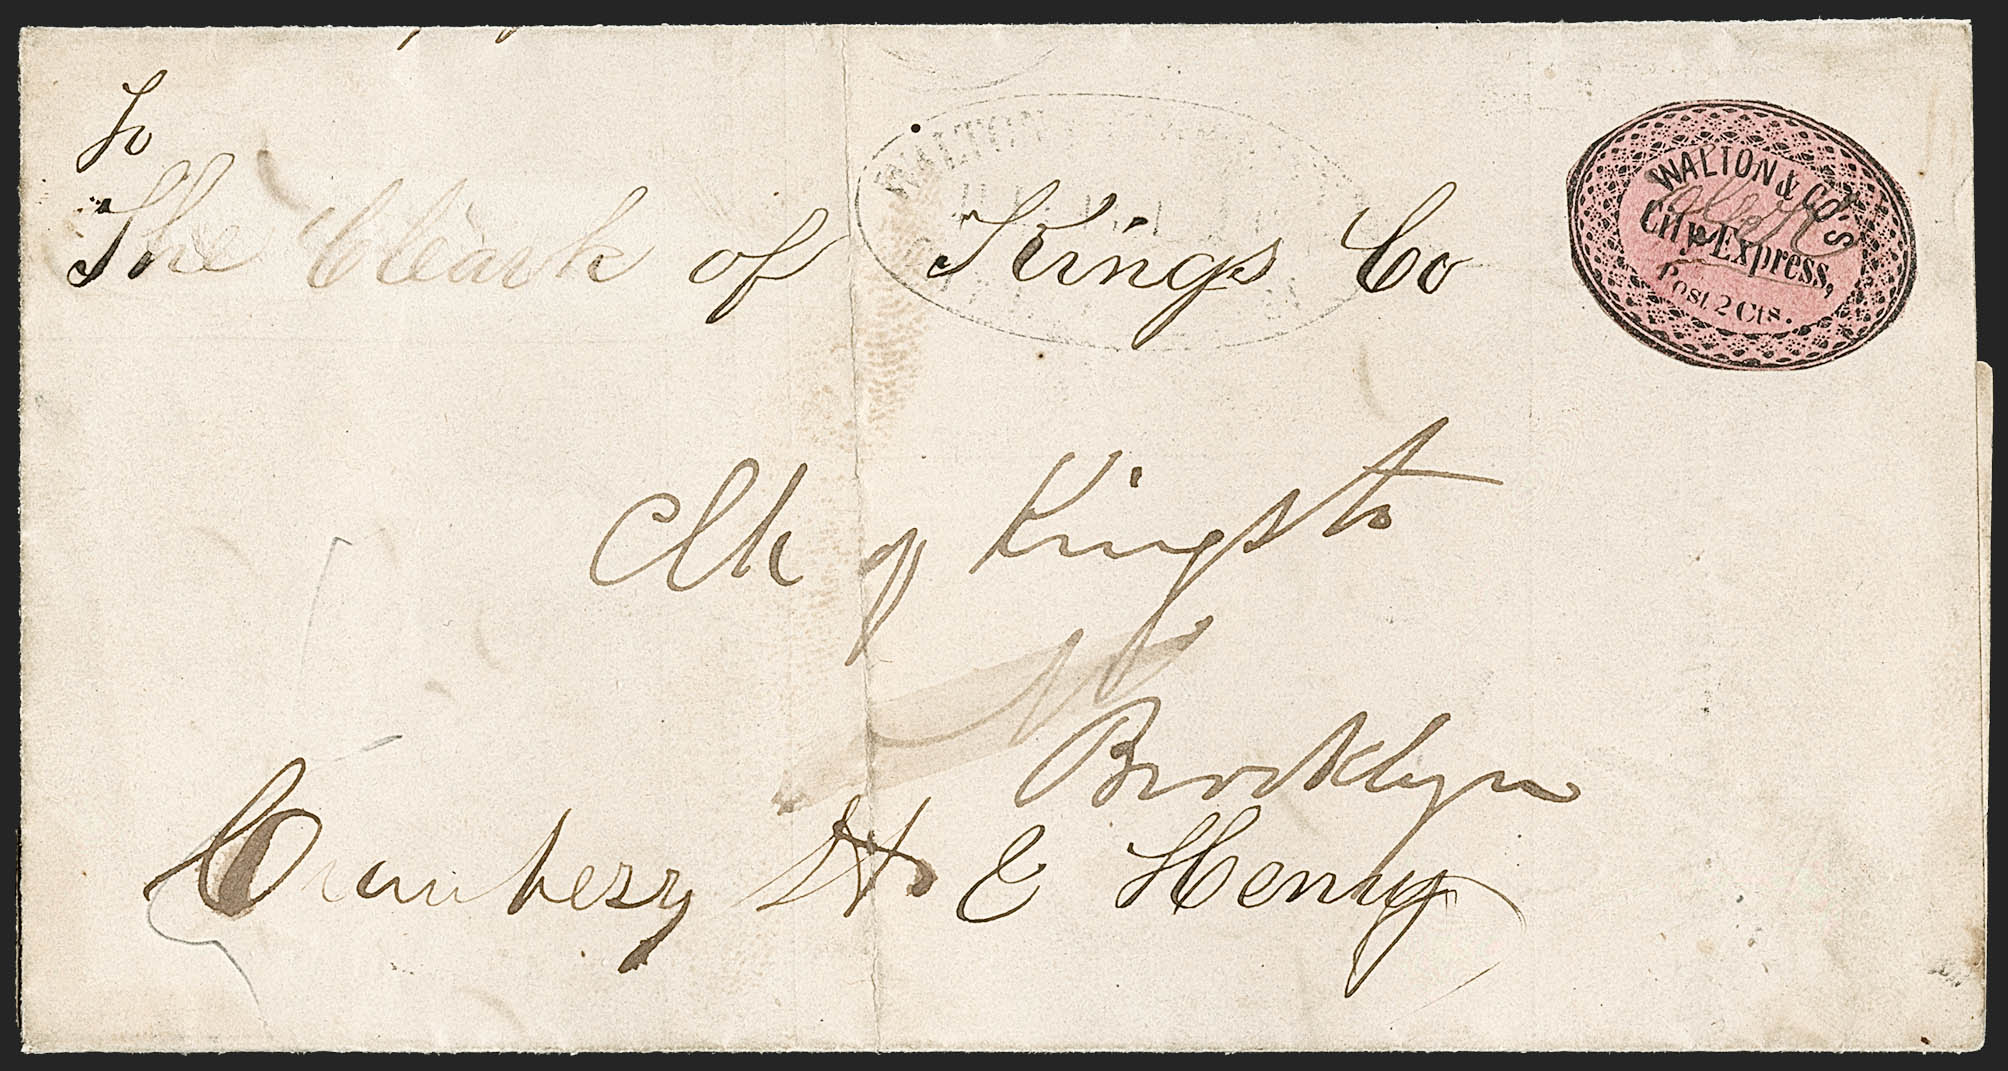 To
The Cleark of Kings Co
WALTON
WALTON & CO'S
City Express,
Post 2 Cts.
Clk of Kings Co
Brooklyn
Cranberry St & Henry